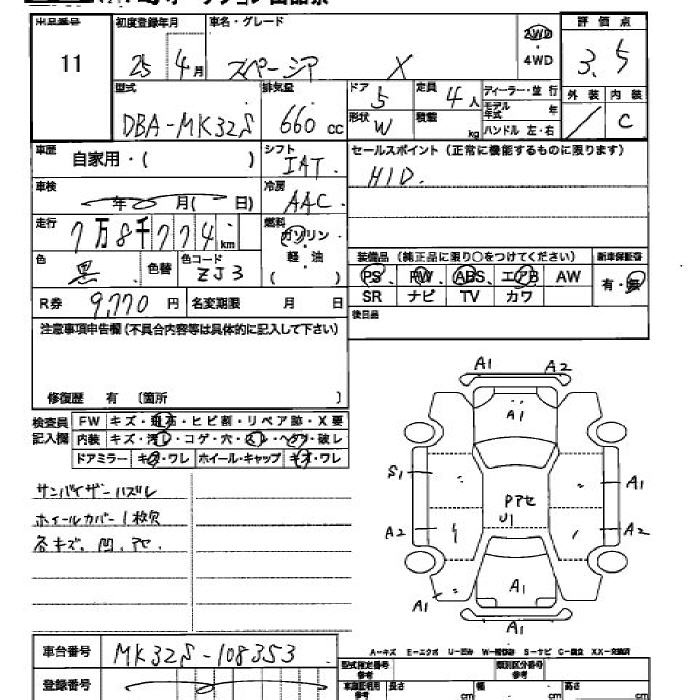 出品番号 初度登録年月 車名・グレード 2WD 評価点
11 25年 4月 スペーシア X ・4WD 3.5
型式 排気量 ドア 5 定員 4人 ディーラー・並行 外装 内装
DBA-MK32S 660cc 形状 W 積載 kg モデル年式 年 ハンドル 左・右 C
車歴 自家用・( ) シフト IAT セールスポイント(正常に機能するものに限ります)
車検 年 月( 日) 冷房 AAC HID.
走行 7万8千774km 燃料 ガソリン・軽油 ( )
色 黒 色替 色コード ZJ3 装備品(純正品に限り○をつけてください) 新車保証書
PS PW ABS エアB AW 有・無
R券 9,770円 名変期限 月 日 SR ナビ TV カワ
注意事項申告欄(不具合内容等は具体的に記入して下さい) 後日品
修復歴 有 [箇所 ]
検査員記入欄 FW キズ・飛石・ヒビ割・リペア跡・X要
内装 キズ・汚レ・コゲ・穴・スレ・ヘタリ・破レ
ドアミラー キズ・ワレ ホイール・キャップ キズ・ワレ
サンバイザーハズレ
ホイールカバー1枚欠
各キズ、凹、アセ
A1 A2
A1
S1 A1
Pアセ
U1
A2 A2
A1
A1 A1
車台番号 MK32S-108353
A-キズ E-エクボ U-凹ミ W-補修跡 S-サビ C-腐食 XX-交換済
登録番号
型式指定番号 参考 類別区分番号 参考
車庫証明用 参考 長さ cm 幅 cm 高さ cm